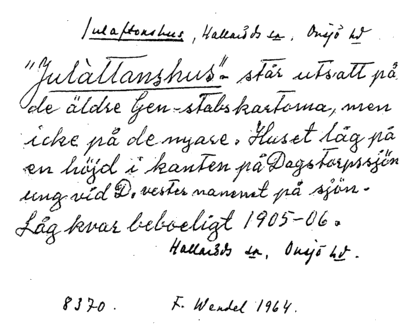 Julaftonshus, Hallaröds sn, Onsjö hd
"Julàttanshus"- står utsatt på
de äldre Gen-stabskartorna, men
icke på de nyare. Huset låg på
en höjd i kanten på Dagstorpssjön
ung vid D. vester namnet på sjön.
Låg kvar beboeligt 1905-06.
Hallaröds sn, Onsjö hd.
8370. F. Wendel 1964.